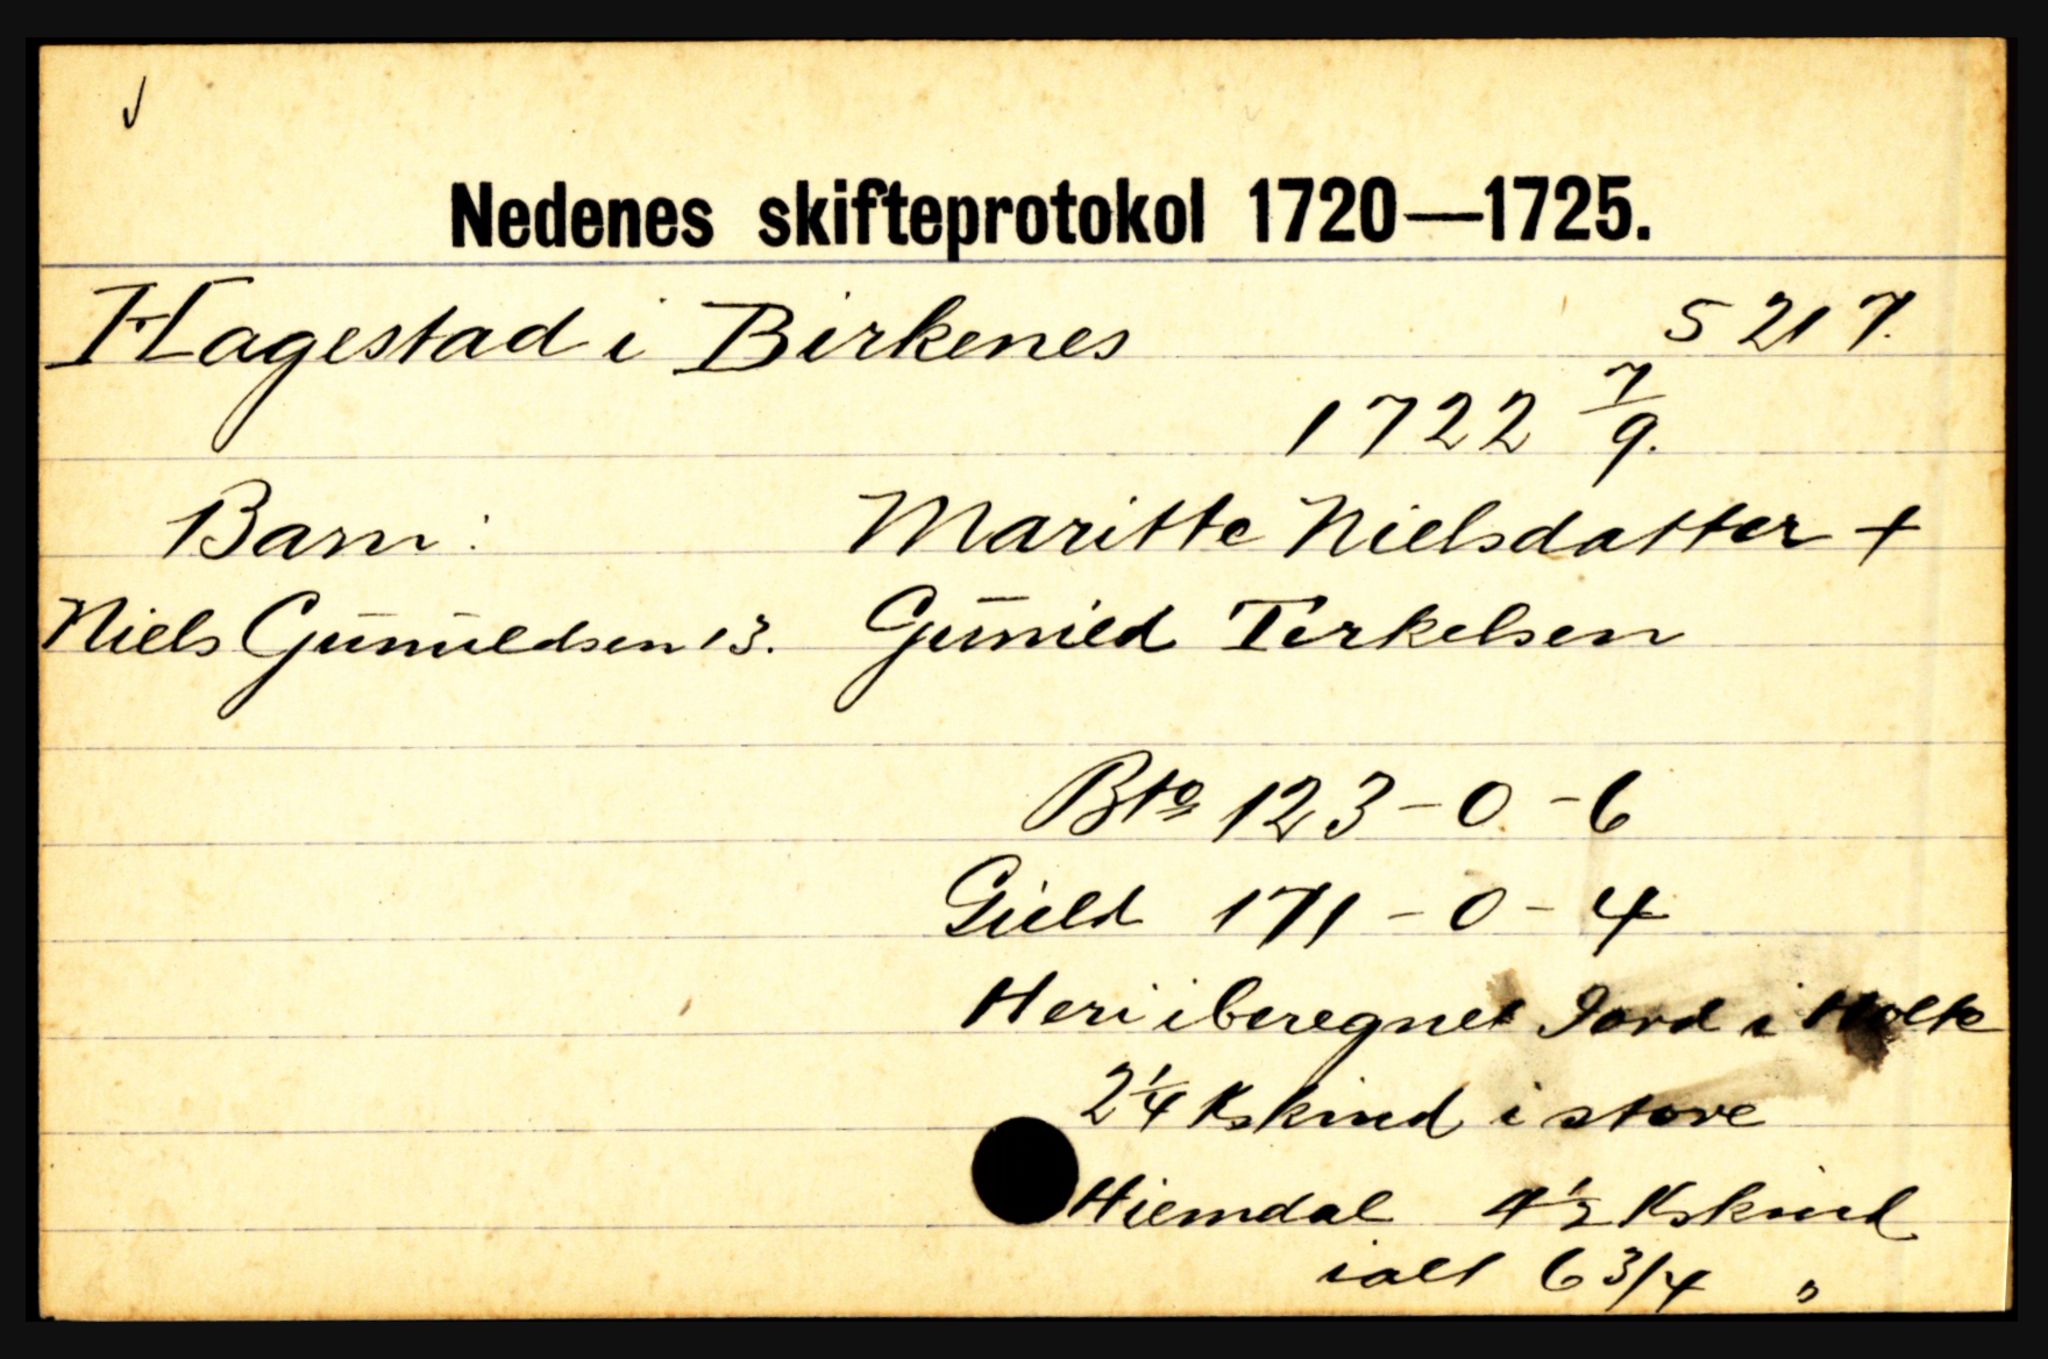 Nedenes skifteprotokol 1720—1725.
Hagestad i Birkenes S 217.
1722 7/9.
Barn: Maritte Nielsdatter +
Niels Gunnildsen 13. Gunnild Terkelsen
Bto 123-0-6
Gield 171-0-4
Heri iberegnet Jord i Holte
2 1/4 Kskind i store
Hiemdal 4 1/2 Kskind
ialt 6 3/4 "